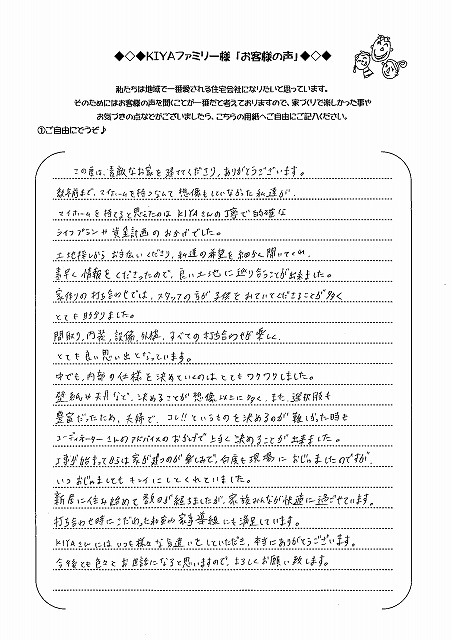 ◆◇◆KIYAファミリー様「お客様の声」◆◇◆
私たちは地域で一番愛される住宅会社になりたいと思っています。
そのためにはお客様の声を聞くことが一番だと考えておりますので、家づくりで楽しかった事や
お気づきの点などがございましたら、こちらの用紙へご自由にご記入ください。
①ご自由にどうぞ♪
この度は、素敵なお家を建ててくださり、ありがとうございます。
数年前まで、マイホームを持つなんて想像もしていなかった私達が、
マイホームを持てると思えたのはKIYAさんの丁寧で的確な
ライフプランや資金計画のおかげでした。
土地探しからお手伝いくださり、私達の希望を細かく聞いてくれ、
素早く情報をくださったので、良い土地に巡り合うことが出来ました。
家作りの打ち合わせでは、スタッフの方が子供をみていてくださることが多く
とても助かりました。
間取り、内装、設備、外構、すべての打ち合わせが楽しく、
とても良い思い出となっています。
中でも、内部の仕様を決めていくのはとてもワクワクしました。
壁紙や天井など、決めることが想像以上に多く、また、選択肢も
豊富だったため、夫婦で、コレ!!というものを決めるのが難しかった時も
コーディネーターさんのアドバイスのおかげで上手く決めることが出来ました。
工事が始まってからは家が建つのが楽しみで、何度も現場におじゃましたのですが、
いつおじゃましてもキレイにしてくれていました。
新居に住み始めて数ヶ月が経ちましたが、家族みんなが快適に過ごせています。
打ち合わせ時にこだわった家事導線にも満足しています。
KIYAさんにはいつも様々な気遣いをしていただき、本当にありがとうございます。
今後とも色々とお世話になると思いますので、よろしくお願い致します。